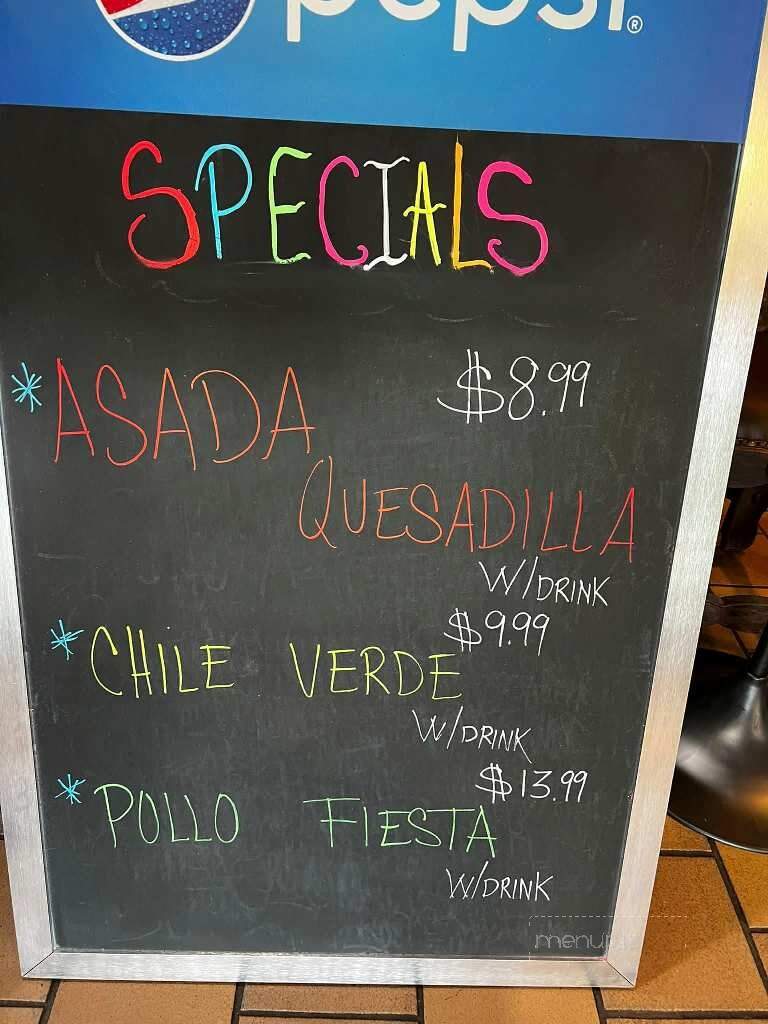 pepsi®
SPECIALS
*ASADA $8.99
QUESADILLA
W/DRINK
$9.99
*CHILE VERDE
W/DRINK
$13.99
*POLLO FIESTA
W/DRINK